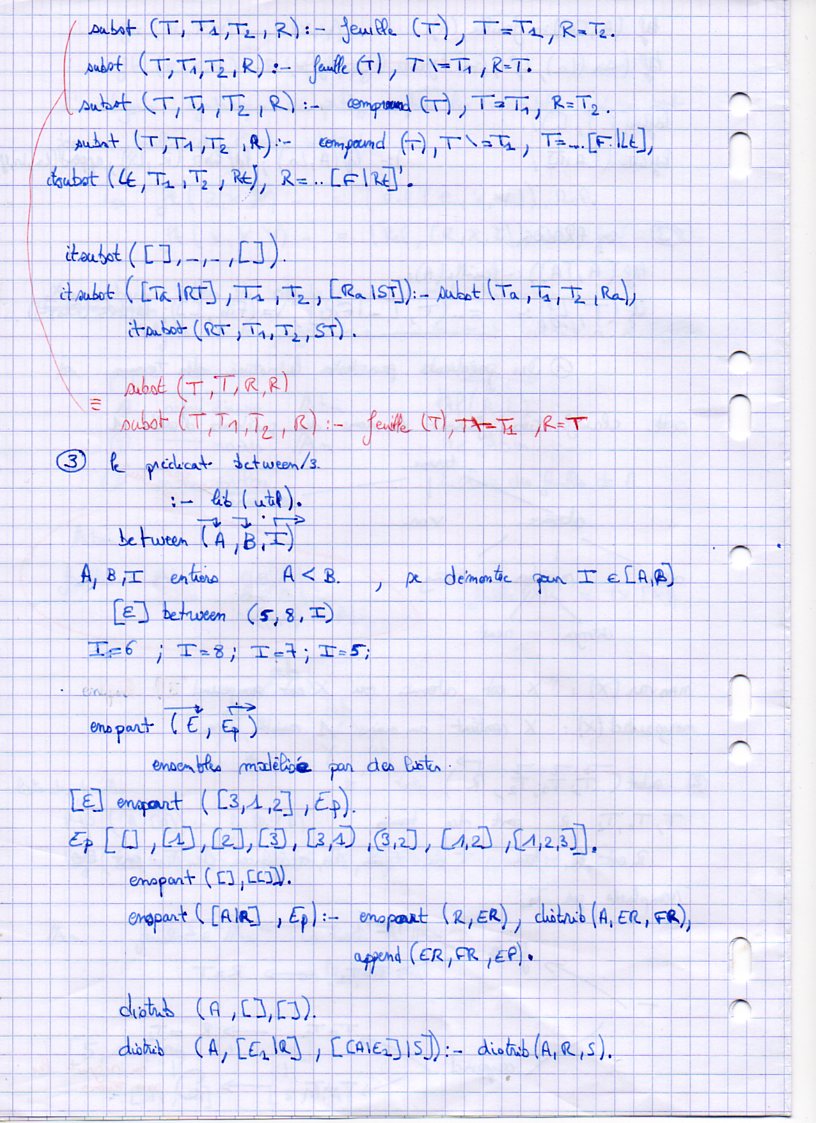 subst (T, T1, T2, R) :- feuille (T), T = T1, R = T2.
subst (T, T1, T2, R) :- feuille (T), T \= T1, R = T.
subst (T, T1, T2, R) :- compound (T), T = T1, R = T2.
subst (T, T1, T2, R) :- compound (T), T \= T1, T =.. [F|Lt],
itsubst (Lt, T1, T2, Rt), R =.. [F|Rt].
itsubst ([], _, _, []).
itsubst ([Ta|RT], T1, T2, [Ra|ST]) :- subst (Ta, T1, T2, Ra),
itsubst (RT, T1, T2, ST).
≡ subst (T, T, R, R)
subst (T, T1, T2, R) :- feuille (T), T \= T1, R = T
③ le prédicat between/3.
:- lib (util).
between (A, B, I)
A, B, I entiers A < B. , se démontre pour I ∈ [A,B]
[E] between (5, 8, I)
I=6 ; I=8 ; I=7 ; I=5 ;
enspart (E, Ep)
ensembles modélisés par des listes.
[E] enspart ([3,1,2], Ep).
Ep [[], [1], [2], [3], [3,1), (3,2], [1,2], [1,2,3]].
enspart ([], [[]]).
enspart ([A|R], Ep) :- enspart (R, ER), distrib (A, ER, FR),
append (ER, FR, EP).
distrib (A, [], []).
distrib (A, [E2|R], [[A|E2]|S]) :- distrib (A, R, S).